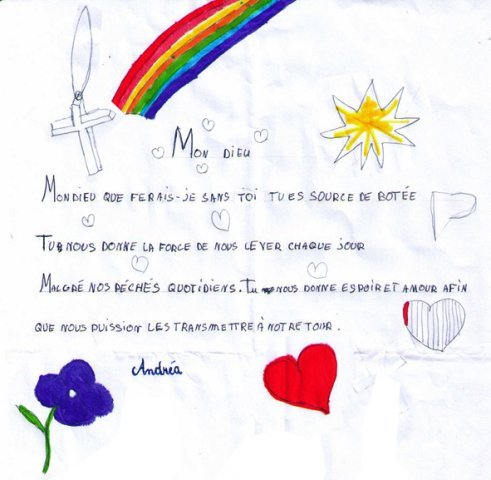 MON DIEU
MON DIEU QUE FERAIS-JE SANS TOI TU ES SOURCE DE BOTÉE
TU NOUS DONNE LA FORCE DE NOUS LEVER CHAQUE JOUR
MALGRÉ NOS PECHÉS QUOTIDIENS. TU NOUS DONNE ESPOIR ET AMOUR AFIN
QUE NOUS PUISSION LES TRANSMETTRE À NOTRE TOUR.
Andréa